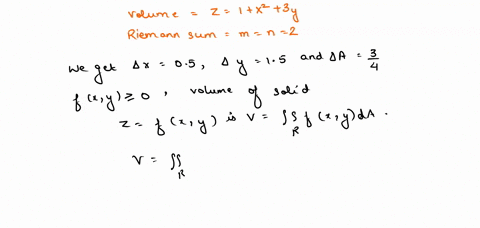 volume = z = 1 + x² + 3y
Riemann sum = m = n = 2
We get Δx = 0.5, Δy = 1.5 and ΔA = 3/4
f(x,y) ≥ 0, volume of solid
z = f(x,y) is V = ∬_R f(x,y) dA.
V = ∬_R